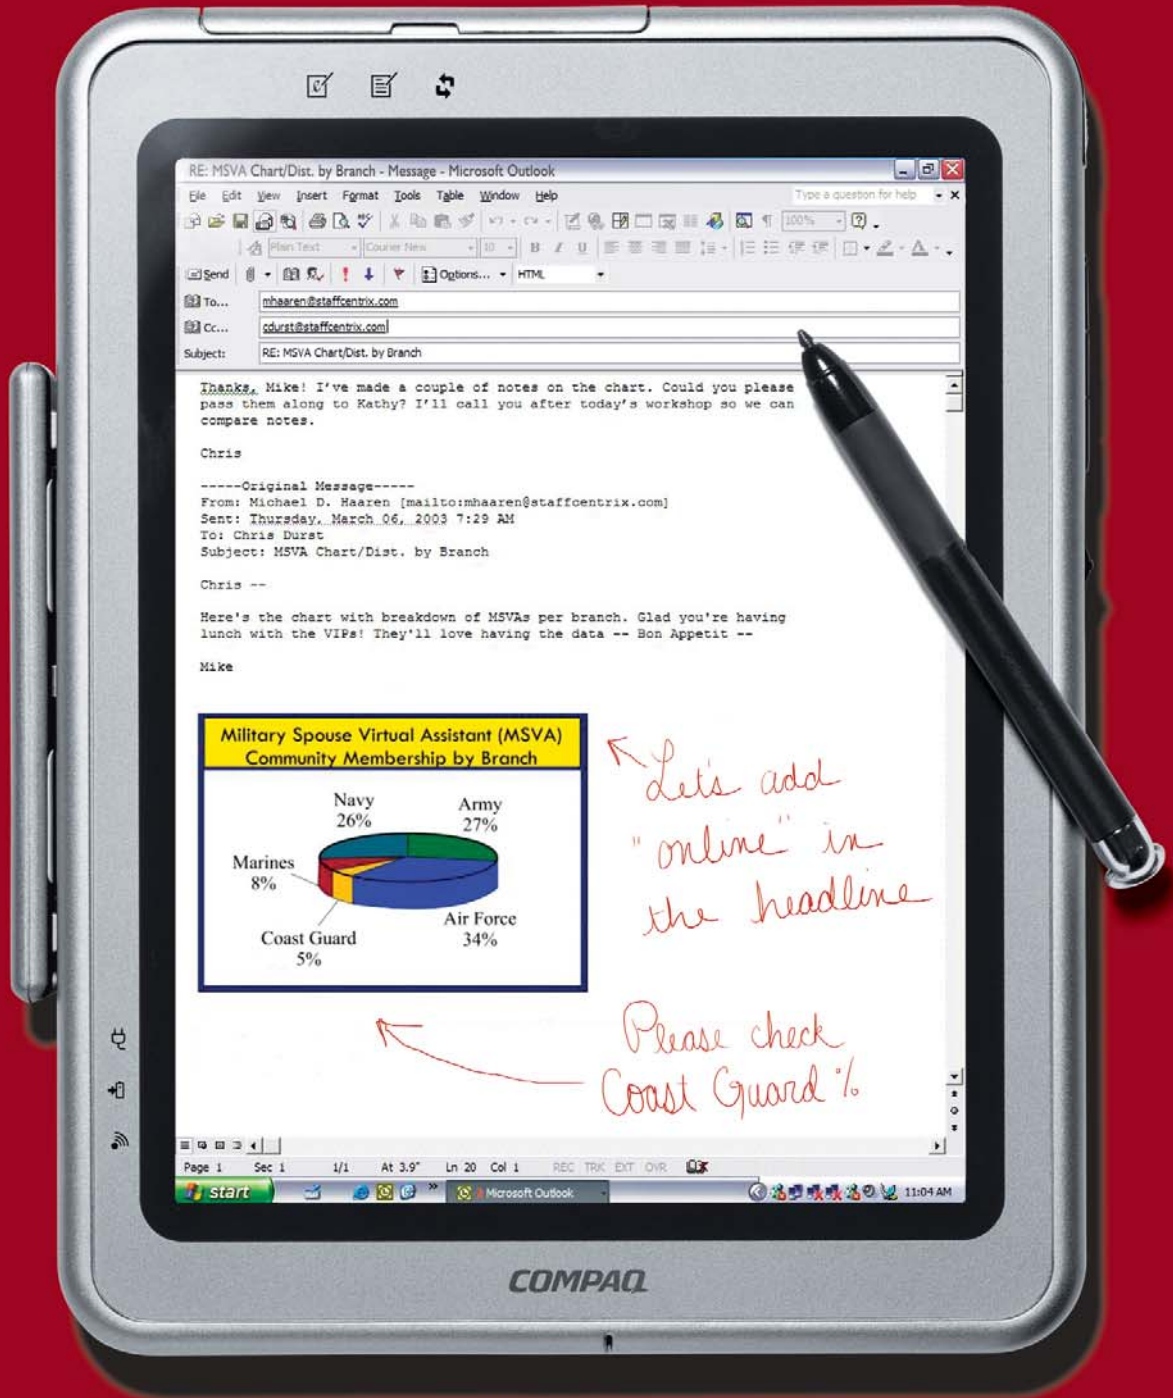 RE: MSVA Chart/Dist. by Branch - Message - Microsoft Outlook
File Edit View Insert Format Tools Table Window Help
Type a question for help
100%
Plain Text Courier New 10 B I U
Send Options... HTML
To... mhaaren@staffcentrix.com
Cc... cdurst@staffcentrix.com
Subject: RE: MSVA Chart/Dist. by Branch
Thanks, Mike! I've made a couple of notes on the chart. Could you please
pass them along to Kathy? I'll call you after today's workshop so we can
compare notes.
Chris
-----Original Message-----
From: Michael D. Haaren [mailto:mhaaren@staffcentrix.com]
Sent: Thursday, March 06, 2003 7:29 AM
To: Chris Durst
Subject: MSVA Chart/Dist. by Branch
Chris --
Here's the chart with breakdown of MSVAs per branch. Glad you're having
lunch with the VIPs! They'll love having the data -- Bon Appetit --
Mike
Military Spouse Virtual Assistant (MSVA)
Community Membership by Branch
Navy
26%
Army
27%
Marines
8%
Air Force
34%
Coast Guard
5%
Let's add
"online" in
the headline
Please check
Coast Guard %
Page 1 Sec 1 1/1 At 3.9" Ln 20 Col 1 REC TRK EXT OVR
start Microsoft Outlook 11:04 AM
COMPAQ